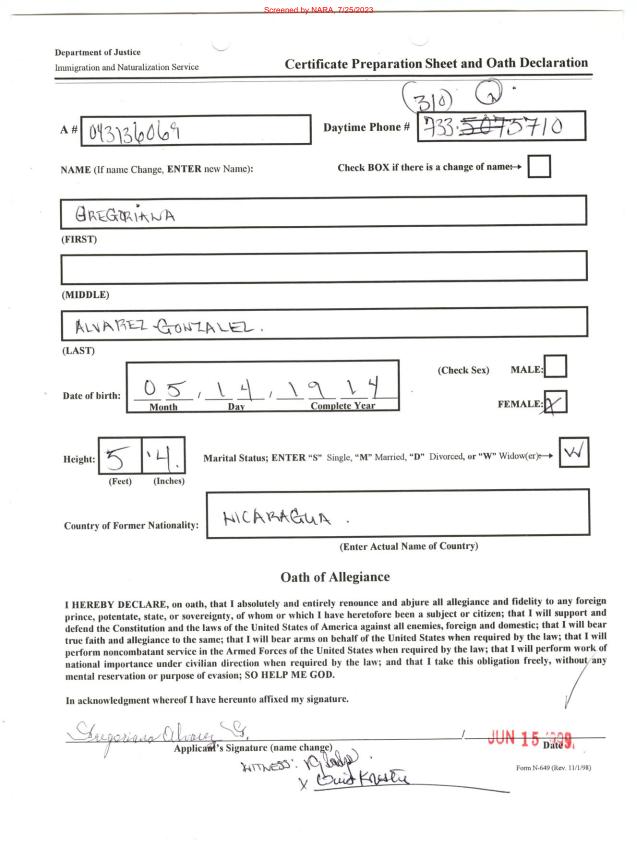 Screened by NARA, 7/25/2023
Department of Justice
Immigration and Naturalization Service
Certificate Preparation Sheet and Oath Declaration
(310)
A # 043136069
Daytime Phone # 733.5710
NAME (If name Change, ENTER new Name):
Check BOX if there is a change of name:→
GREGORIANA
(FIRST)
(MIDDLE)
ALVAREZ GONZALEZ.
(LAST)
(Check Sex) MALE:
Date of birth: 05, 14, 1914
Month Day Complete Year
FEMALE: X
Height: 5 '4.
Marital Status; ENTER "S" Single, "M" Married, "D" Divorced, or "W" Widow(er)→ W
(Feet) (Inches)
Country of Former Nationality: NICARAGUA .
(Enter Actual Name of Country)
Oath of Allegiance
I HEREBY DECLARE, on oath, that I absolutely and entirely renounce and abjure all allegiance and fidelity to any foreign
prince, potentate, state, or sovereignty, of whom or which I have heretofore been a subject or citizen; that I will support and
defend the Constitution and the laws of the United States of America against all enemies, foreign and domestic; that I will bear
true faith and allegiance to the same; that I will bear arms on behalf of the United States when required by the law; that I will
perform noncombatant service in the Armed Forces of the United States when required by the law; that I will perform work of
national importance under civilian direction when required by the law; and that I take this obligation freely, without any
mental reservation or purpose of evasion; SO HELP ME GOD.
In acknowledgment whereof I have hereunto affixed my signature.
Gregoriana Alvarez G.
/ JUN 15 1999
Applicant's Signature (name change)
Date
WITNESS:
X
Form N-649 (Rev. 11/1/98)